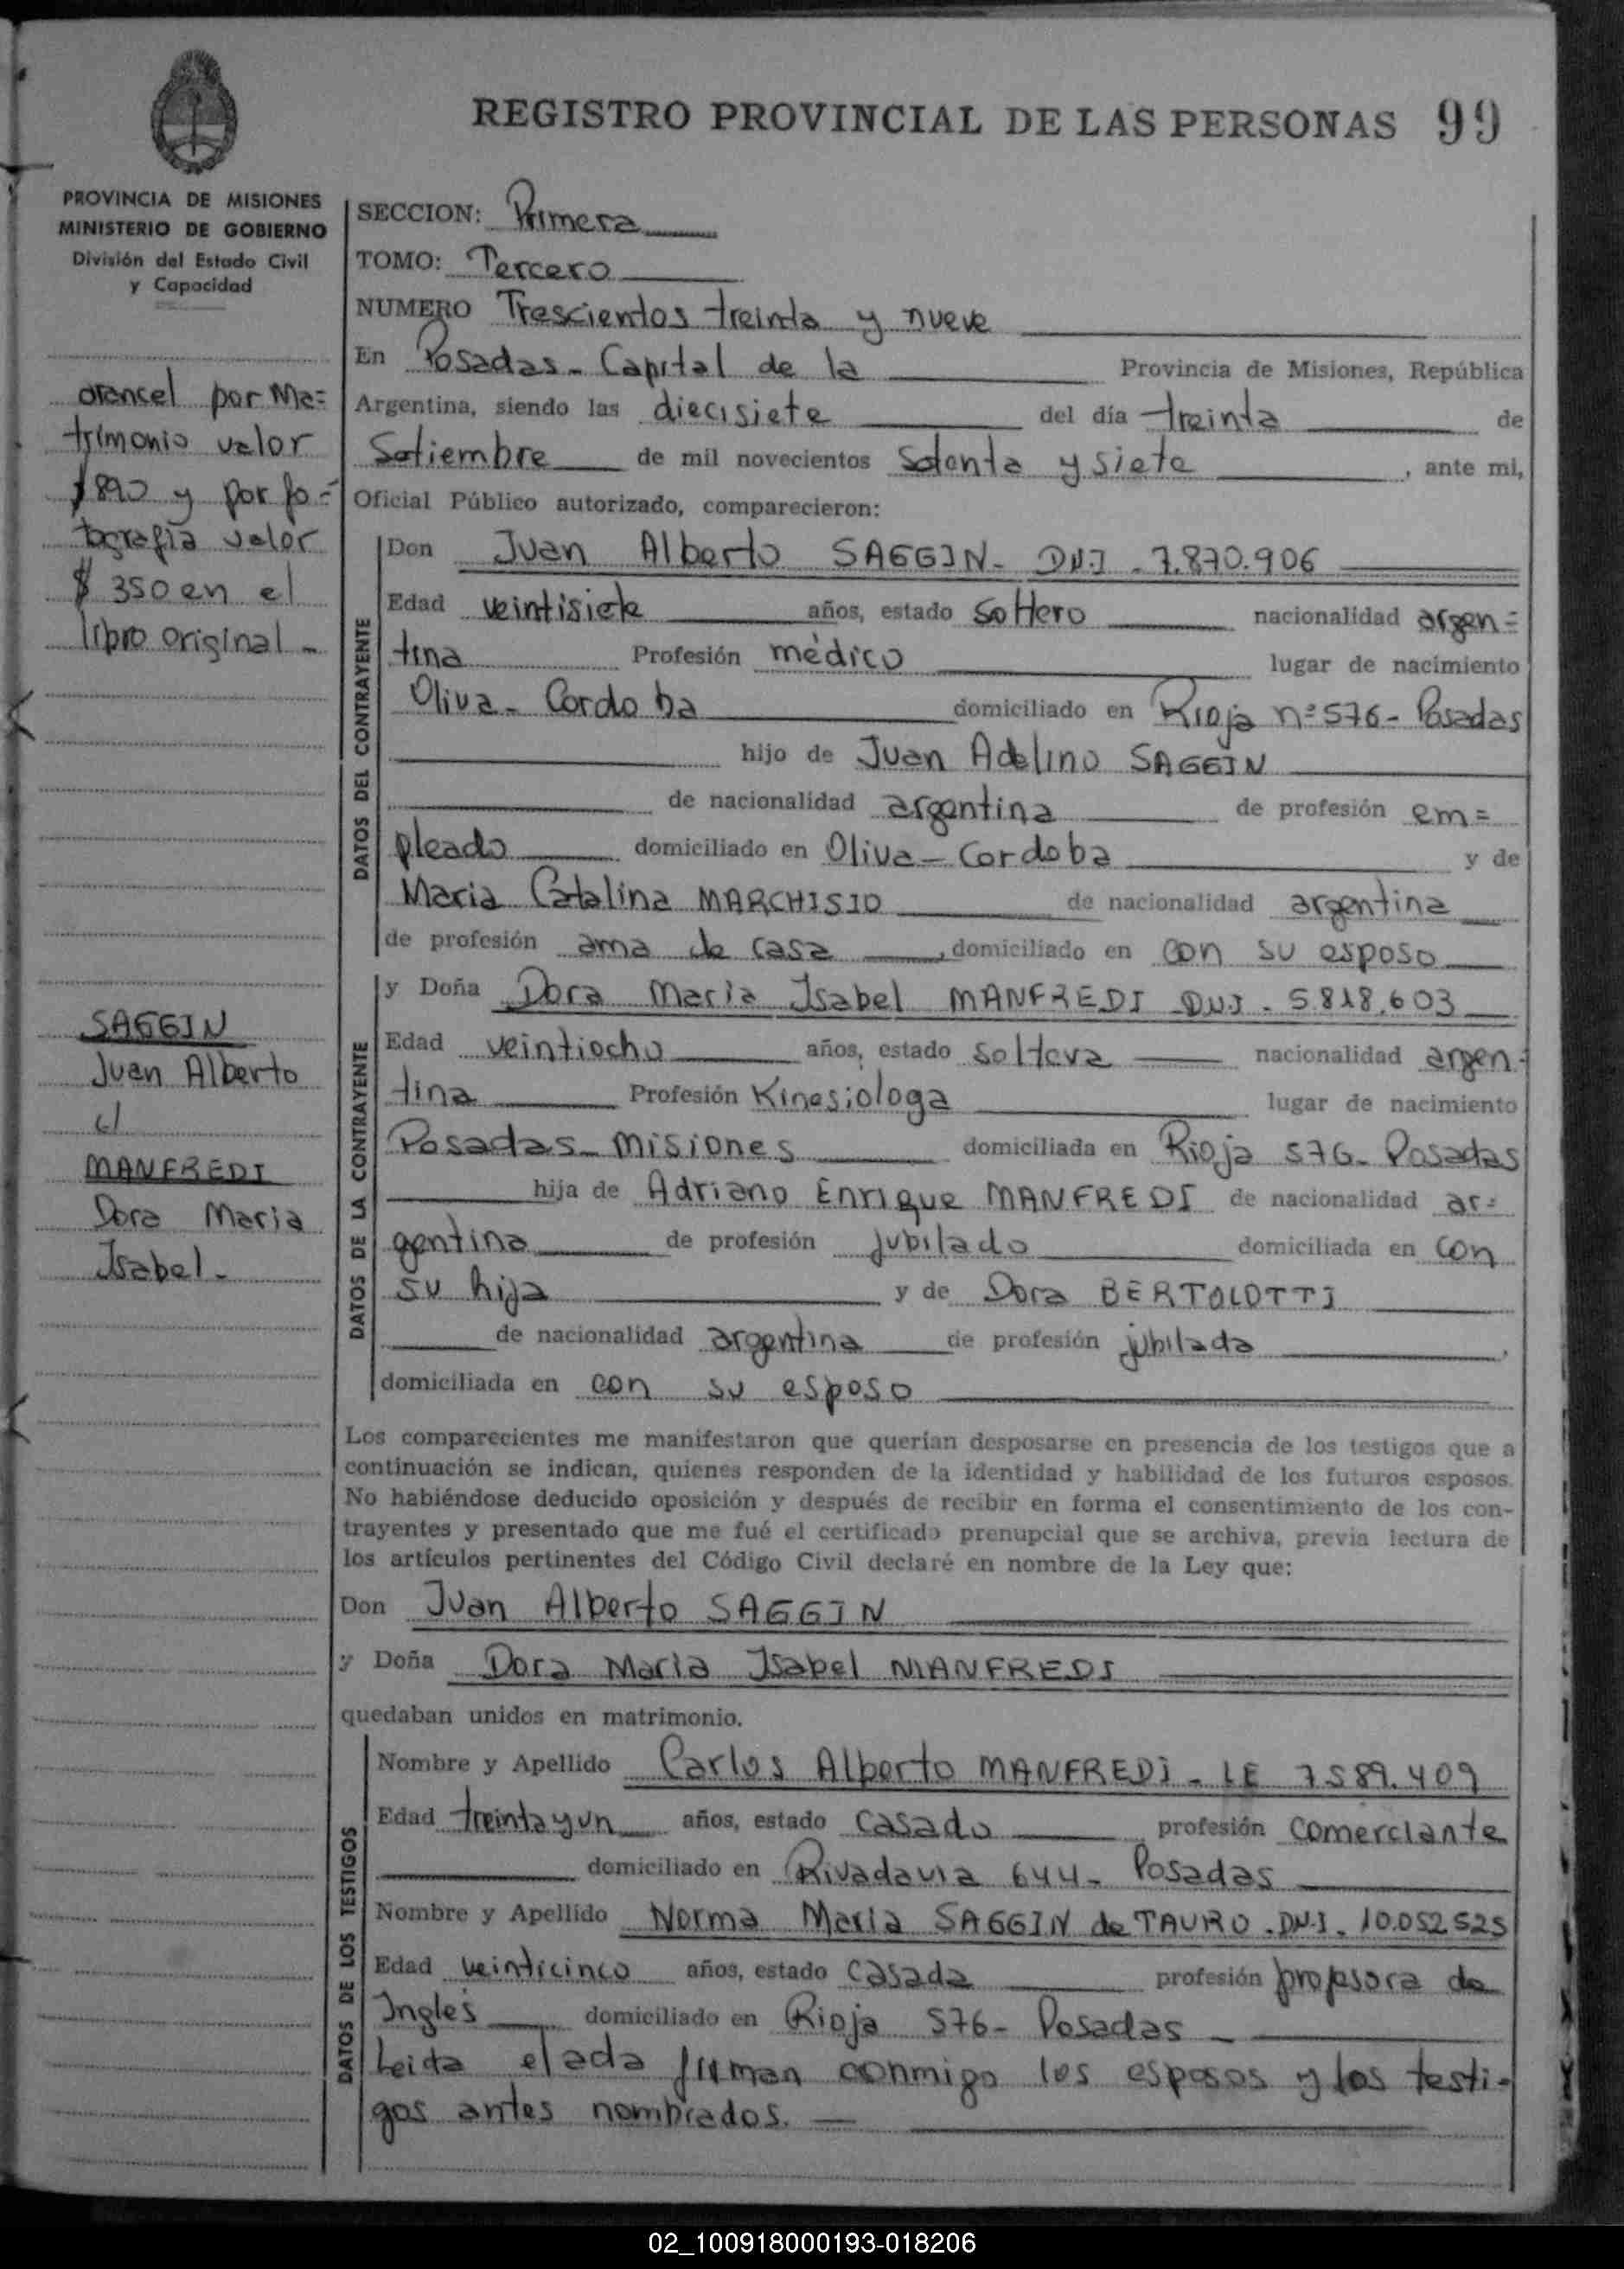 REGISTRO PROVINCIAL DE LAS PERSONAS 99
PROVINCIA DE MISIONES
MINISTERIO DE GOBIERNO
División del Estado Civil
y Capacidad
arancel por Ma=
trimonio valor
$890 y por fo=
tografía valor
$ 350 en el
libro original -
SAGGIN
Juan Alberto
c/
MANFREDI
Dora Maria
Isabel -
SECCION: Primera
TOMO: Tercero
NUMERO Trescientos treinta y nueve
En Posadas - Capital de la Provincia de Misiones, República
Argentina, siendo las diecisiete del día treinta de
Setiembre de mil novecientos setenta y siete, ante mi,
Oficial Público autorizado, comparecieron:
DATOS DEL CONTRAYENTE
Don Juan Alberto SAGGIN - DNI - 7.870.906
Edad veintisiete años, estado soltero nacionalidad argen=
tina Profesión médico lugar de nacimiento
Oliva - Cordoba domiciliado en Rioja nº 576 - Posadas
hijo de Juan Adelino SAGGIN
de nacionalidad argentina de profesión em=
pleado domiciliado en Oliva - Cordoba y de
Maria Catalina MARCHISIO de nacionalidad argentina
de profesión ama de casa, domiciliado en con su esposo
DATOS DE LA CONTRAYENTE
y Doña Dora Maria Isabel MANFREDI DNI - 5.818.603
Edad veintiocho años, estado soltera nacionalidad argen=
tina Profesión Kinesiologa lugar de nacimiento
Posadas - Misiones domiciliada en Rioja 576 - Posadas
hija de Adriano Enrique MANFREDI de nacionalidad ar=
gentina de profesión jubilado domiciliada en con
su hija y de Dora BERTOLOTTI
de nacionalidad argentina de profesión jubilada,
domiciliada en con su esposo
Los comparecientes me manifestaron que querían desposarse en presencia de los testigos que a
continuación se indican, quienes responden de la identidad y habilidad de los futuros esposos.
No habiéndose deducido oposición y después de recibir en forma el consentimiento de los con-
trayentes y presentado que me fué el certificado prenupcial que se archiva, previa lectura de
los artículos pertinentes del Código Civil declaré en nombre de la Ley que:
Don Juan Alberto SAGGIN
y Doña Dora Maria Isabel MANFREDI
quedaban unidos en matrimonio.
DATOS DE LOS TESTIGOS
Nombre y Apellido Carlos Alberto MANFREDI - LE 7589.409
Edad treinta y un años, estado casado profesión comerciante
domiciliado en Rivadavia 644 - Posadas
Nombre y Apellido Norma Maria SAGGIN de TAURO - DNI - 10.052.525
Edad veinticinco años, estado casada profesión profesora de
Inglés domiciliado en Rioja 576 - Posadas -
Leida el acta firman conmigo los esposos y los testi-
gos antes nombrados. -
02_100918000193-018206